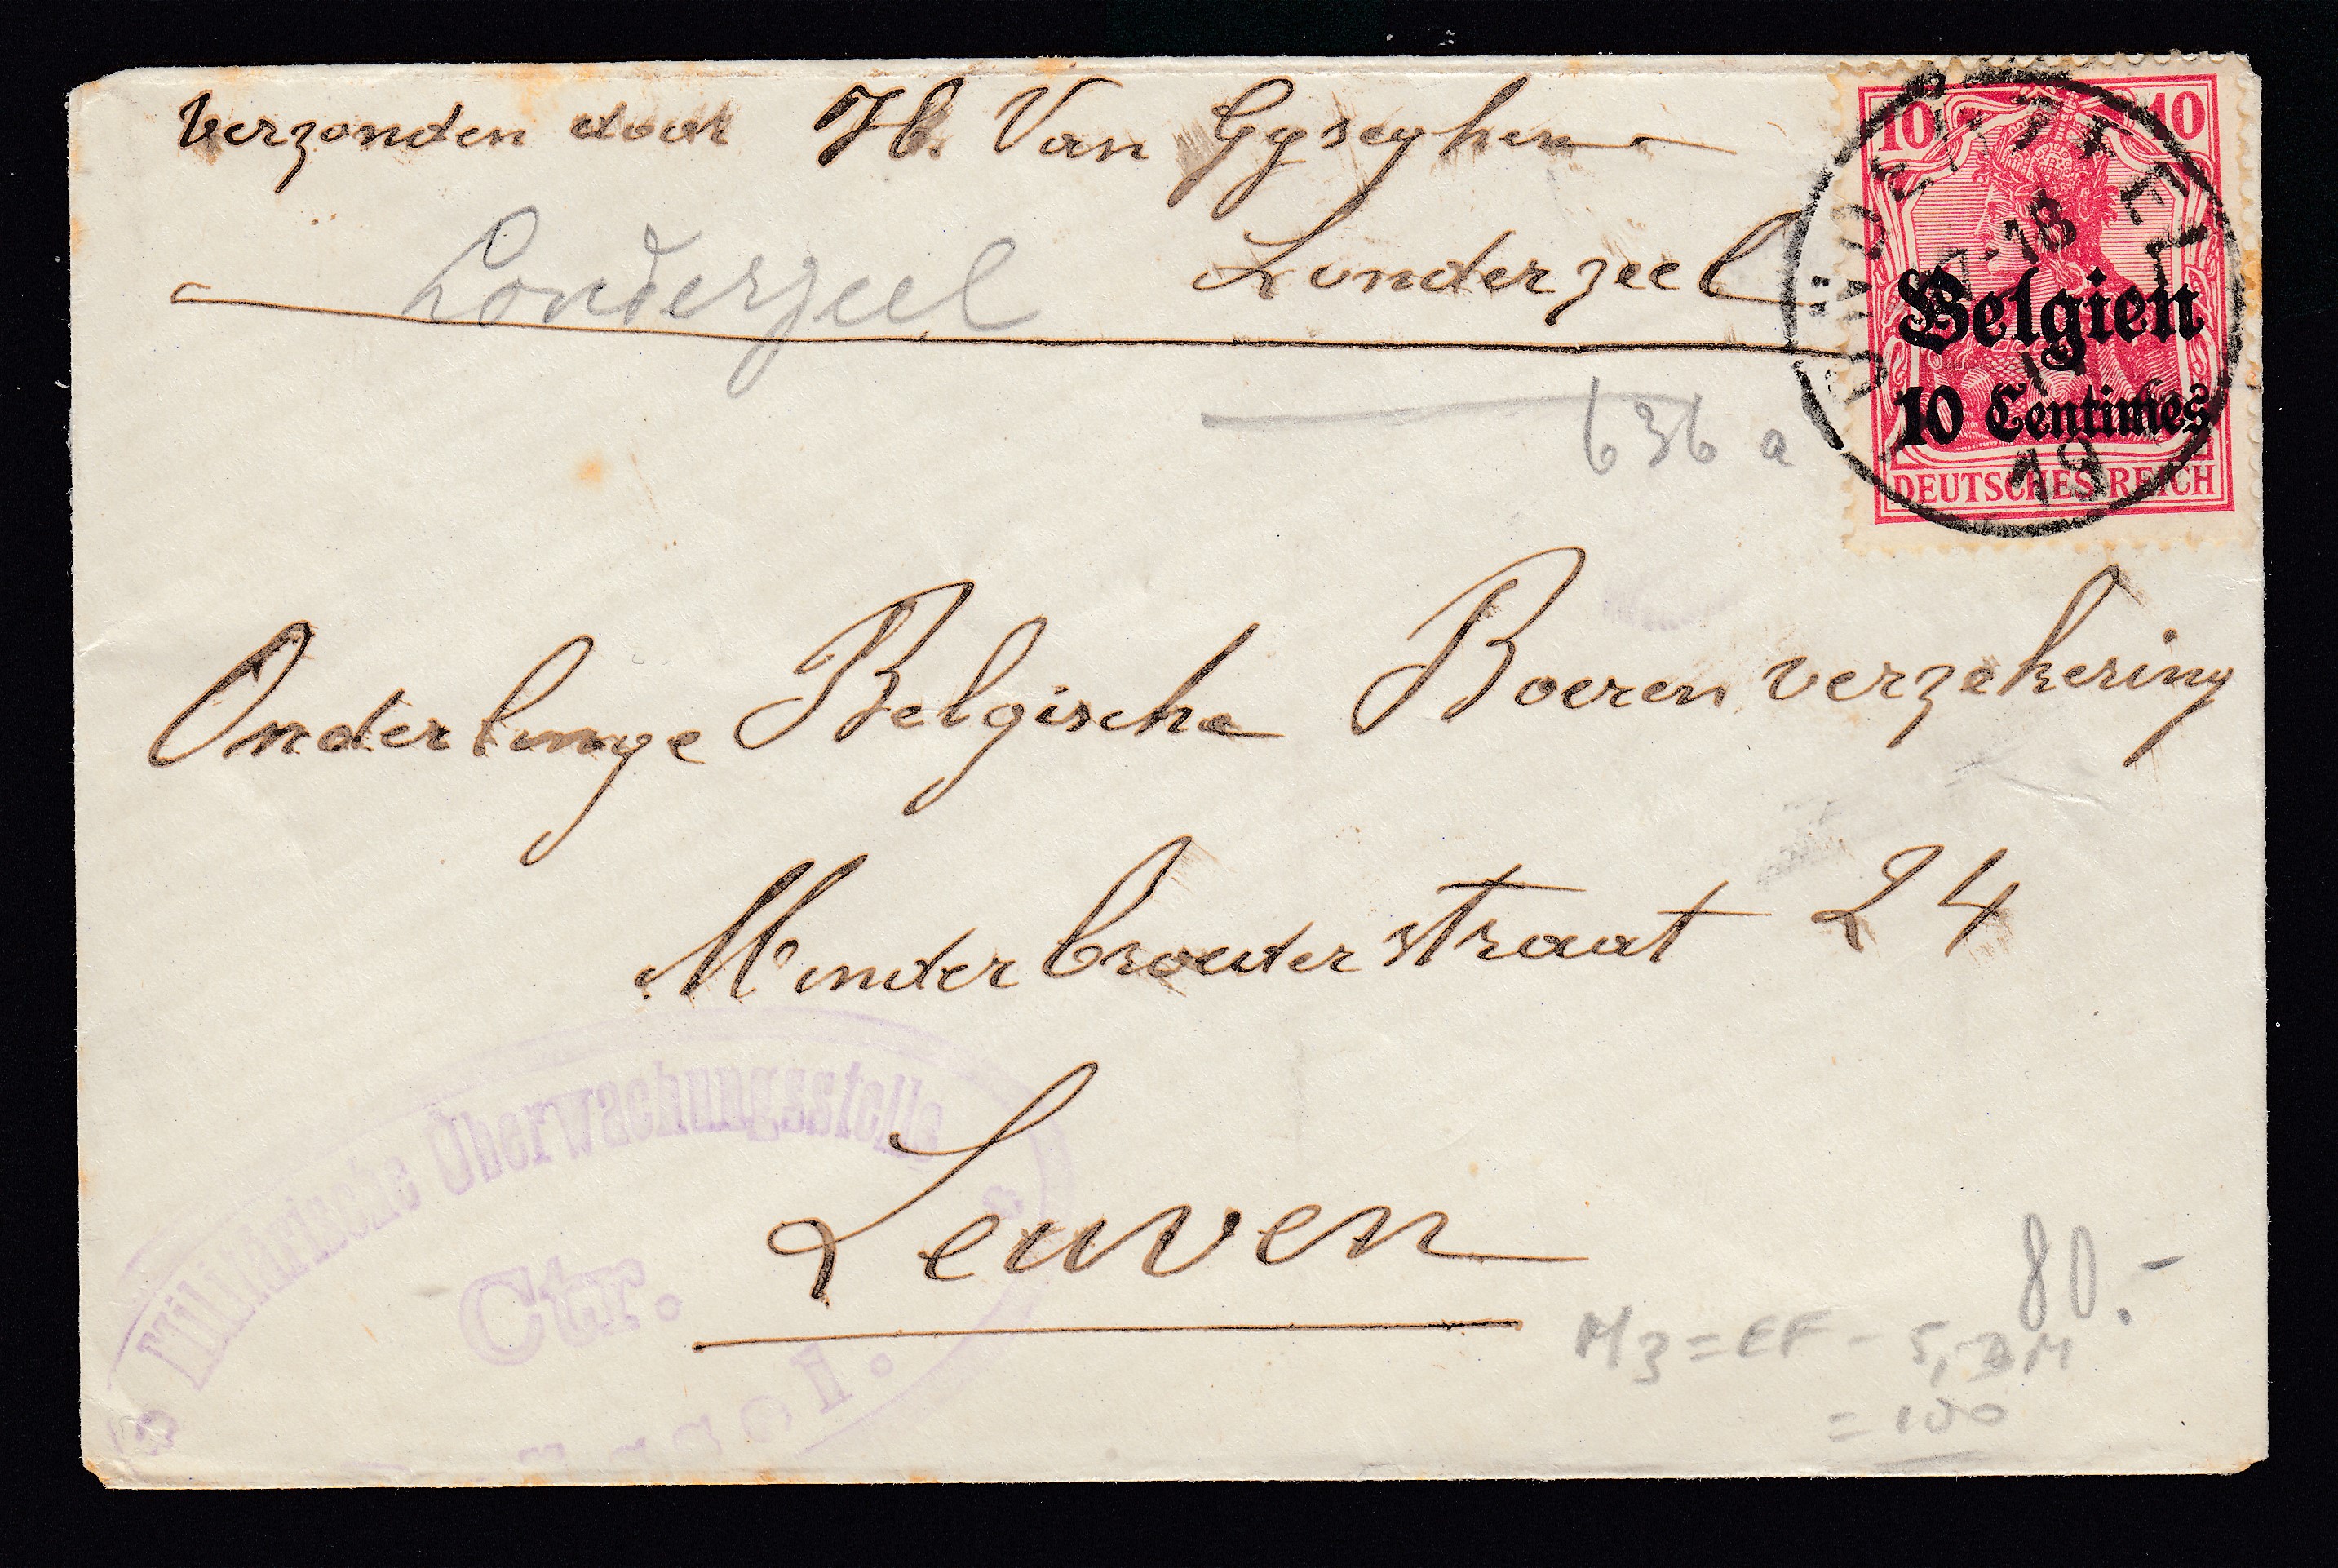 Verzonden door H. Van Gyseghem
Londerzeel
Londerzeel
10 10
Belgien
10 Centimes
DEUTSCHES REICH
7-18
19
636 a
Onderlinge Belgische Boerenverzekering
Minderbroederstraat 24
Leuven
Militärische Überwachungsstelle
Ctr.
80.-
M3 = EF - 5,- DM
= 100